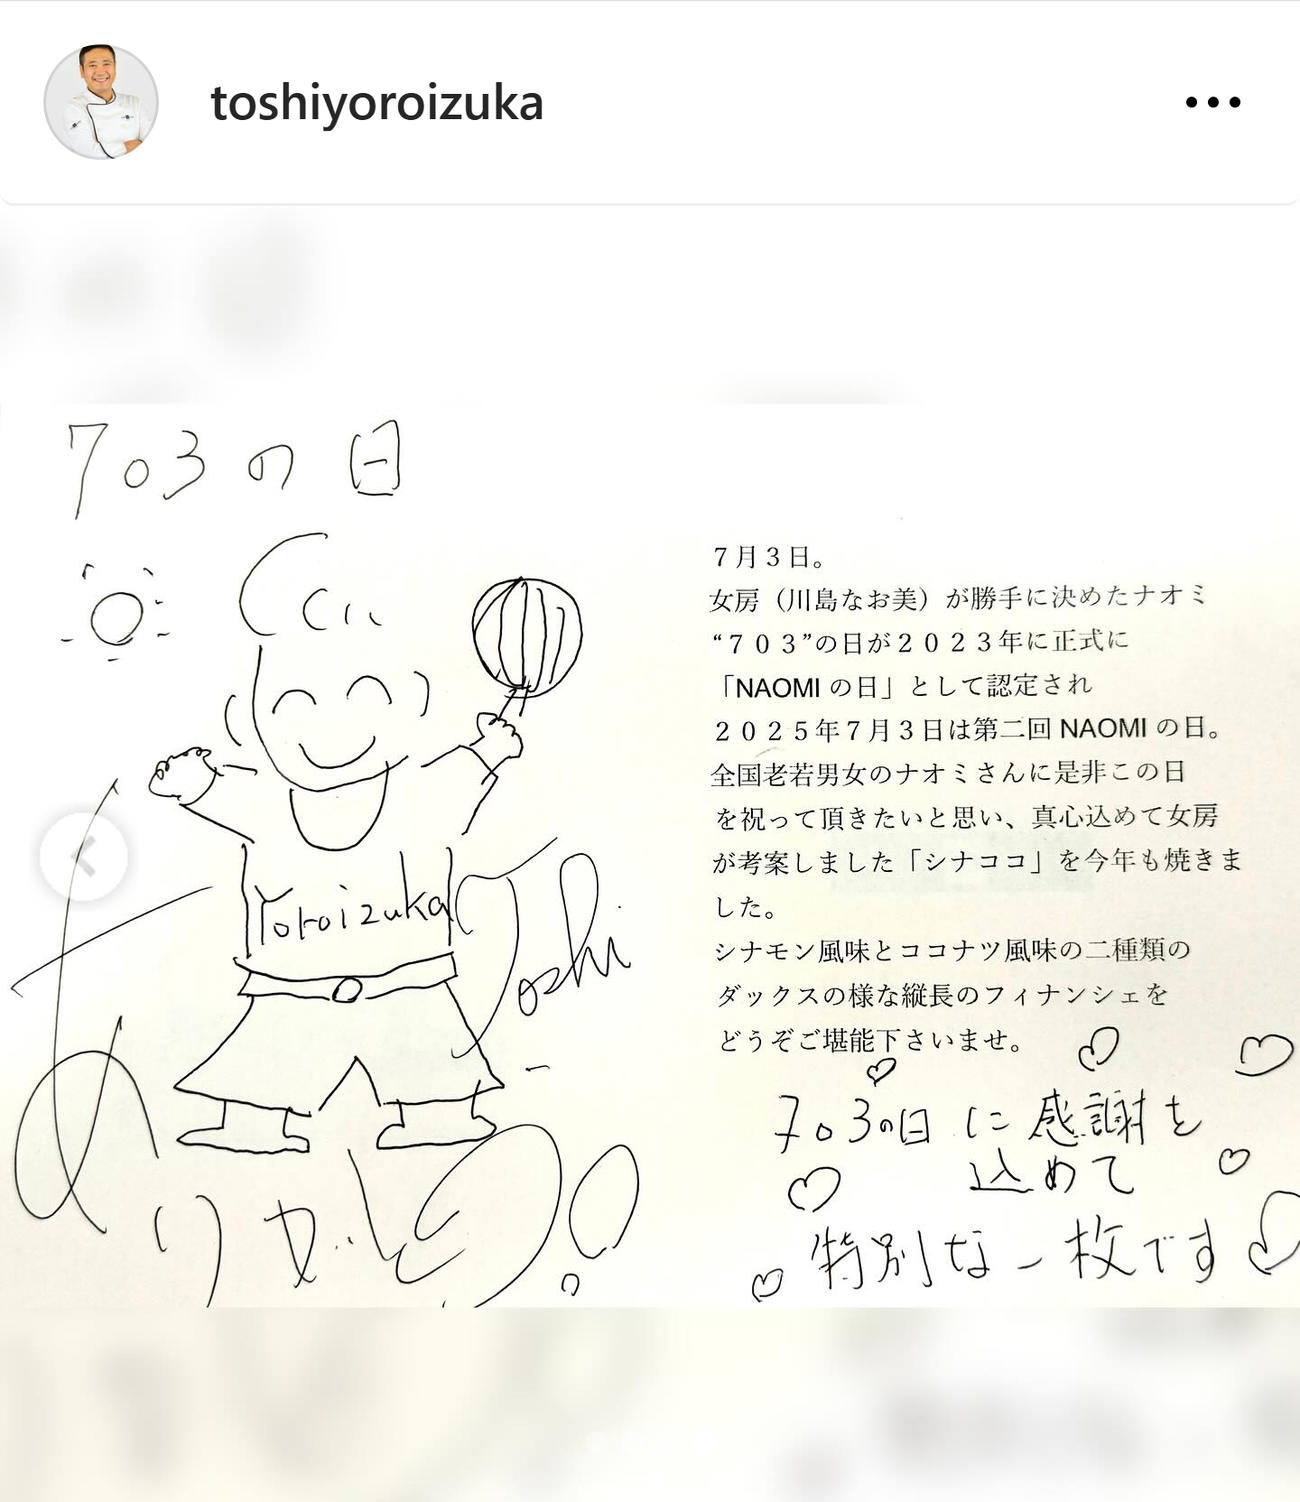 toshiyoroizuka
703の日
Yoroizuka
Toshi
ありがとう
7月3日。
女房（川島なお美）が勝手に決めたナオミ
“７０３”の日が２０２３年に正式に
「NAOMIの日」として認定され
２０２５年７月３日は第二回 NAOMI の日。
全国老若男女のナオミさんに是非この日
を祝って頂きたいと思い、真心込めて女房
が考案しました「シナココ」を今年も焼きま
した。
シナモン風味とココナツ風味の二種類の
ダックスの様な縦長のフィナンシェを
どうぞご堪能下さいませ。
703の日に感謝を
込めて
特別な一枚です